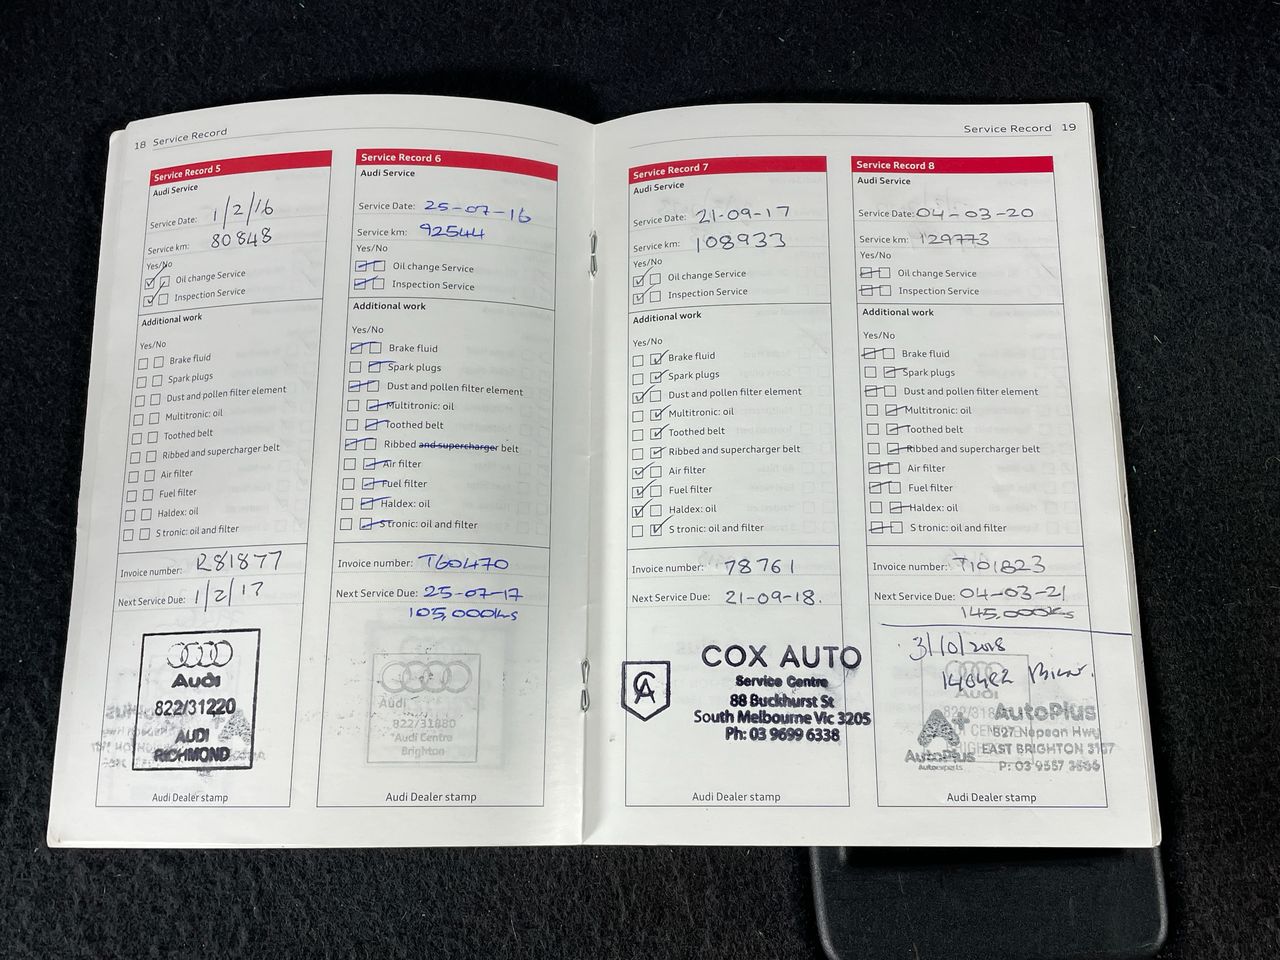 18 Service Record
Service Record 5
Audi Service
Service Date: 1/2/16
Service km: 80848
Yes/No
Oil change Service
Inspection Service
Additional work
Yes/No
Brake fluid
Spark plugs
Dust and pollen filter element
Multitronic: oil
Toothed belt
Ribbed and supercharger belt
Air filter
Fuel filter
Haldex: oil
S tronic: oil and filter
Invoice number: R81877
Next Service Due: 1/2/17
Audi
822/31220
AUDI
RICHMOND
Audi Dealer stamp
Service Record 6
Audi Service
Service Date: 25-07-16
Service km: 92544
Yes/No
Oil change Service
Inspection Service
Additional work
Yes/No
Brake fluid
Spark plugs
Dust and pollen filter element
Multitronic: oil
Toothed belt
Ribbed and supercharger belt
Air filter
Fuel filter
Haldex: oil
S tronic: oil and filter
Invoice number: T60470
Next Service Due: 25-07-17
105,000Ks
Audi
822/31880
Audi Centre
Brighton
Audi Dealer stamp
Service Record 19
Service Record 7
Audi Service
Service Date: 21-09-17
Service km: 108933
Yes/No
Oil change Service
Inspection Service
Additional work
Yes/No
Brake fluid
Spark plugs
Dust and pollen filter element
Multitronic: oil
Toothed belt
Ribbed and supercharger belt
Air filter
Fuel filter
Haldex: oil
S tronic: oil and filter
Invoice number: 78761
Next Service Due: 21-09-18.
COX AUTO
Service Centre
88 Buckhurst St
South Melbourne Vic 3205
Ph: 03 9699 6338
Audi Dealer stamp
Service Record 8
Audi Service
Service Date: 04-03-20
Service km: 129773
Yes/No
Oil change Service
Inspection Service
Additional work
Yes/No
Brake fluid
Spark plugs
Dust and pollen filter element
Multitronic: oil
Toothed belt
Ribbed and supercharger belt
Air filter
Fuel filter
Haldex: oil
S tronic: oil and filter
Invoice number: T101823
Next Service Due: 04-03-21
145,000Ks
Audi
AutoPlus
827 Nepean Hwy
EAST BRIGHTON 3187
AutoPlus
P: 03 9557
Audi Dealer stamp